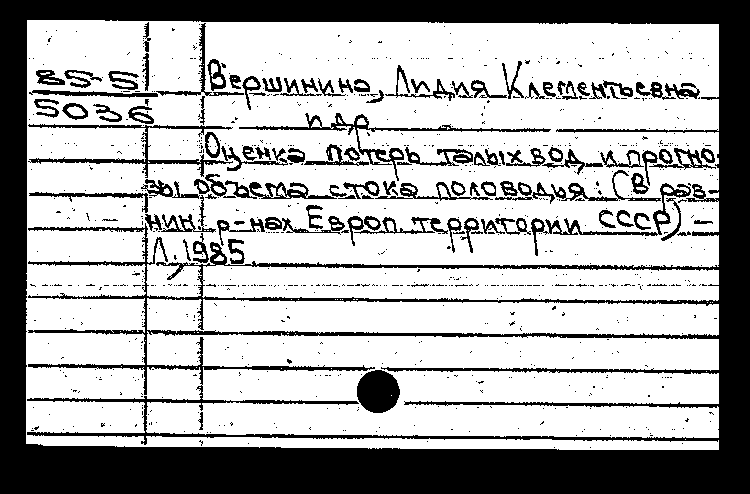 85-5 Вершинина, Лидия Клементьевна
5036
и др.
Оценка потерь талых вод и прогно-
зы объема стока половодья: (В рав-
нин. р-нах Европ. территории СССР) –
Л., 1985.